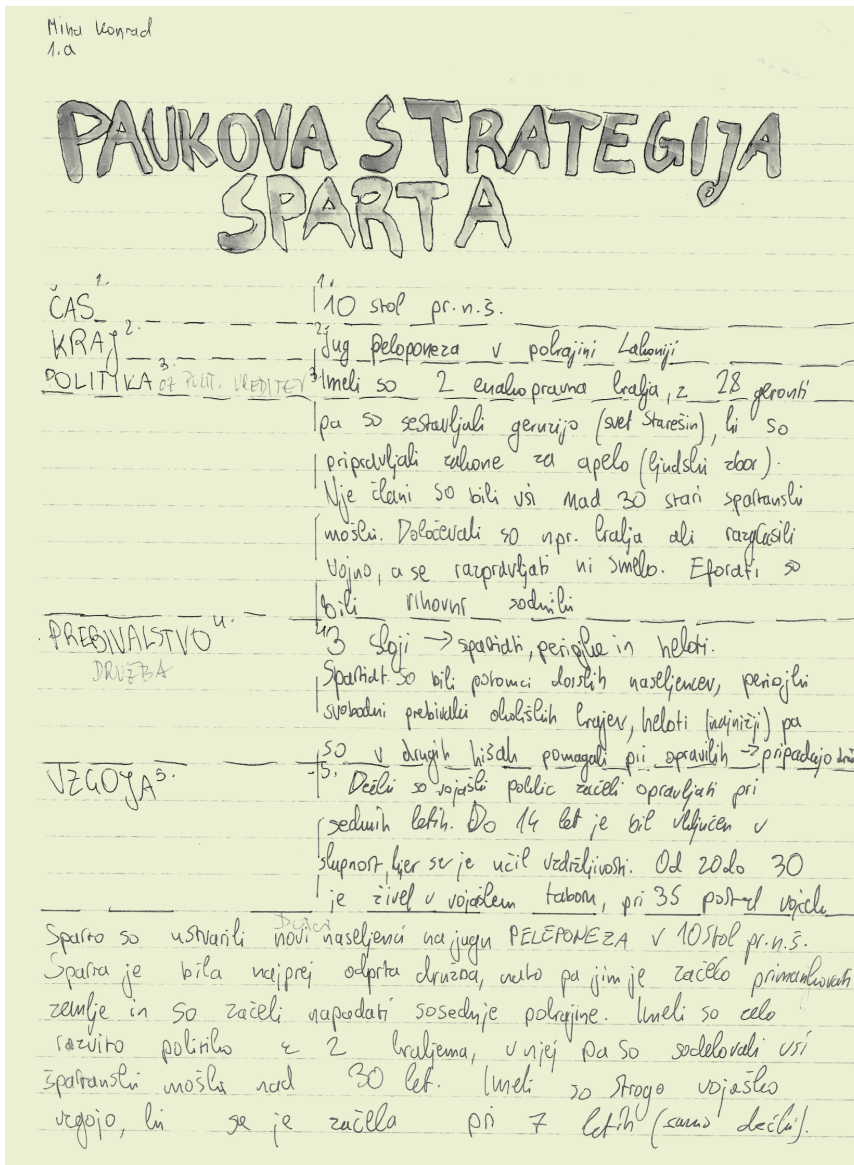 Miha Konrad
1.a
PAUKOVA STRATEGIJA
SPARTA
ČAS 1. 1. 10 stol pr.n.š.
KRAJ 2. 2. Jug Peloponeza v pokrajini Lakoniji
POLITIKA 3. oz POLIT. UREDITEV 3. Imeli so 2 enakopravna kralja, z 28 geronti
pa so sestavljali geruzijo (svet starešin), ki so
pripravljali zakone za apelo (ljudski zbor).
Nje člani so bili vsi nad 30 stari spartanski
moški. Določevali so npr. kralja ali razglasili
vojno, a se razpravljati ni smelo. Eforati so
bili vrhovni sodniki
PREBIVALSTVO 4. 4. 3 sloji → spartiati, periojke in heloti.
DRUŽBA Spartiat. so bili potomci dorskih naseljencev, periojki
svobodni prebivalci okoliških krajev, heloti (najnižji) pa
so v drugih hišah pomagali pri opravilih → pripadajo
VZGOJA 5. 5. Dečki so vojaški poklic začeli opravljati pri
sedmih letih. Do 14 let je bil vključen v
skupnost, kjer se je učil vzdržljivosti. Od 20 do 30
je živel v vojaškem taboru, pri 35 postal
Sparto so ustvarili novi naseljenci na jugu PELEPONEZA v 10 stol pr.n.š.
Sparta je bila najprej odprta družba, nato pa jim je začelo primankovati
zemlje in so začeli napadati sosednje pokrajine. Imeli so zelo
razvito politiko z 2 kraljema, v njej pa so sodelovali vsi
špartanski moški nad 30 let. Imeli so strogo vojaško
vzgojo, ki se je začela pri 7 letih (samo dečki).